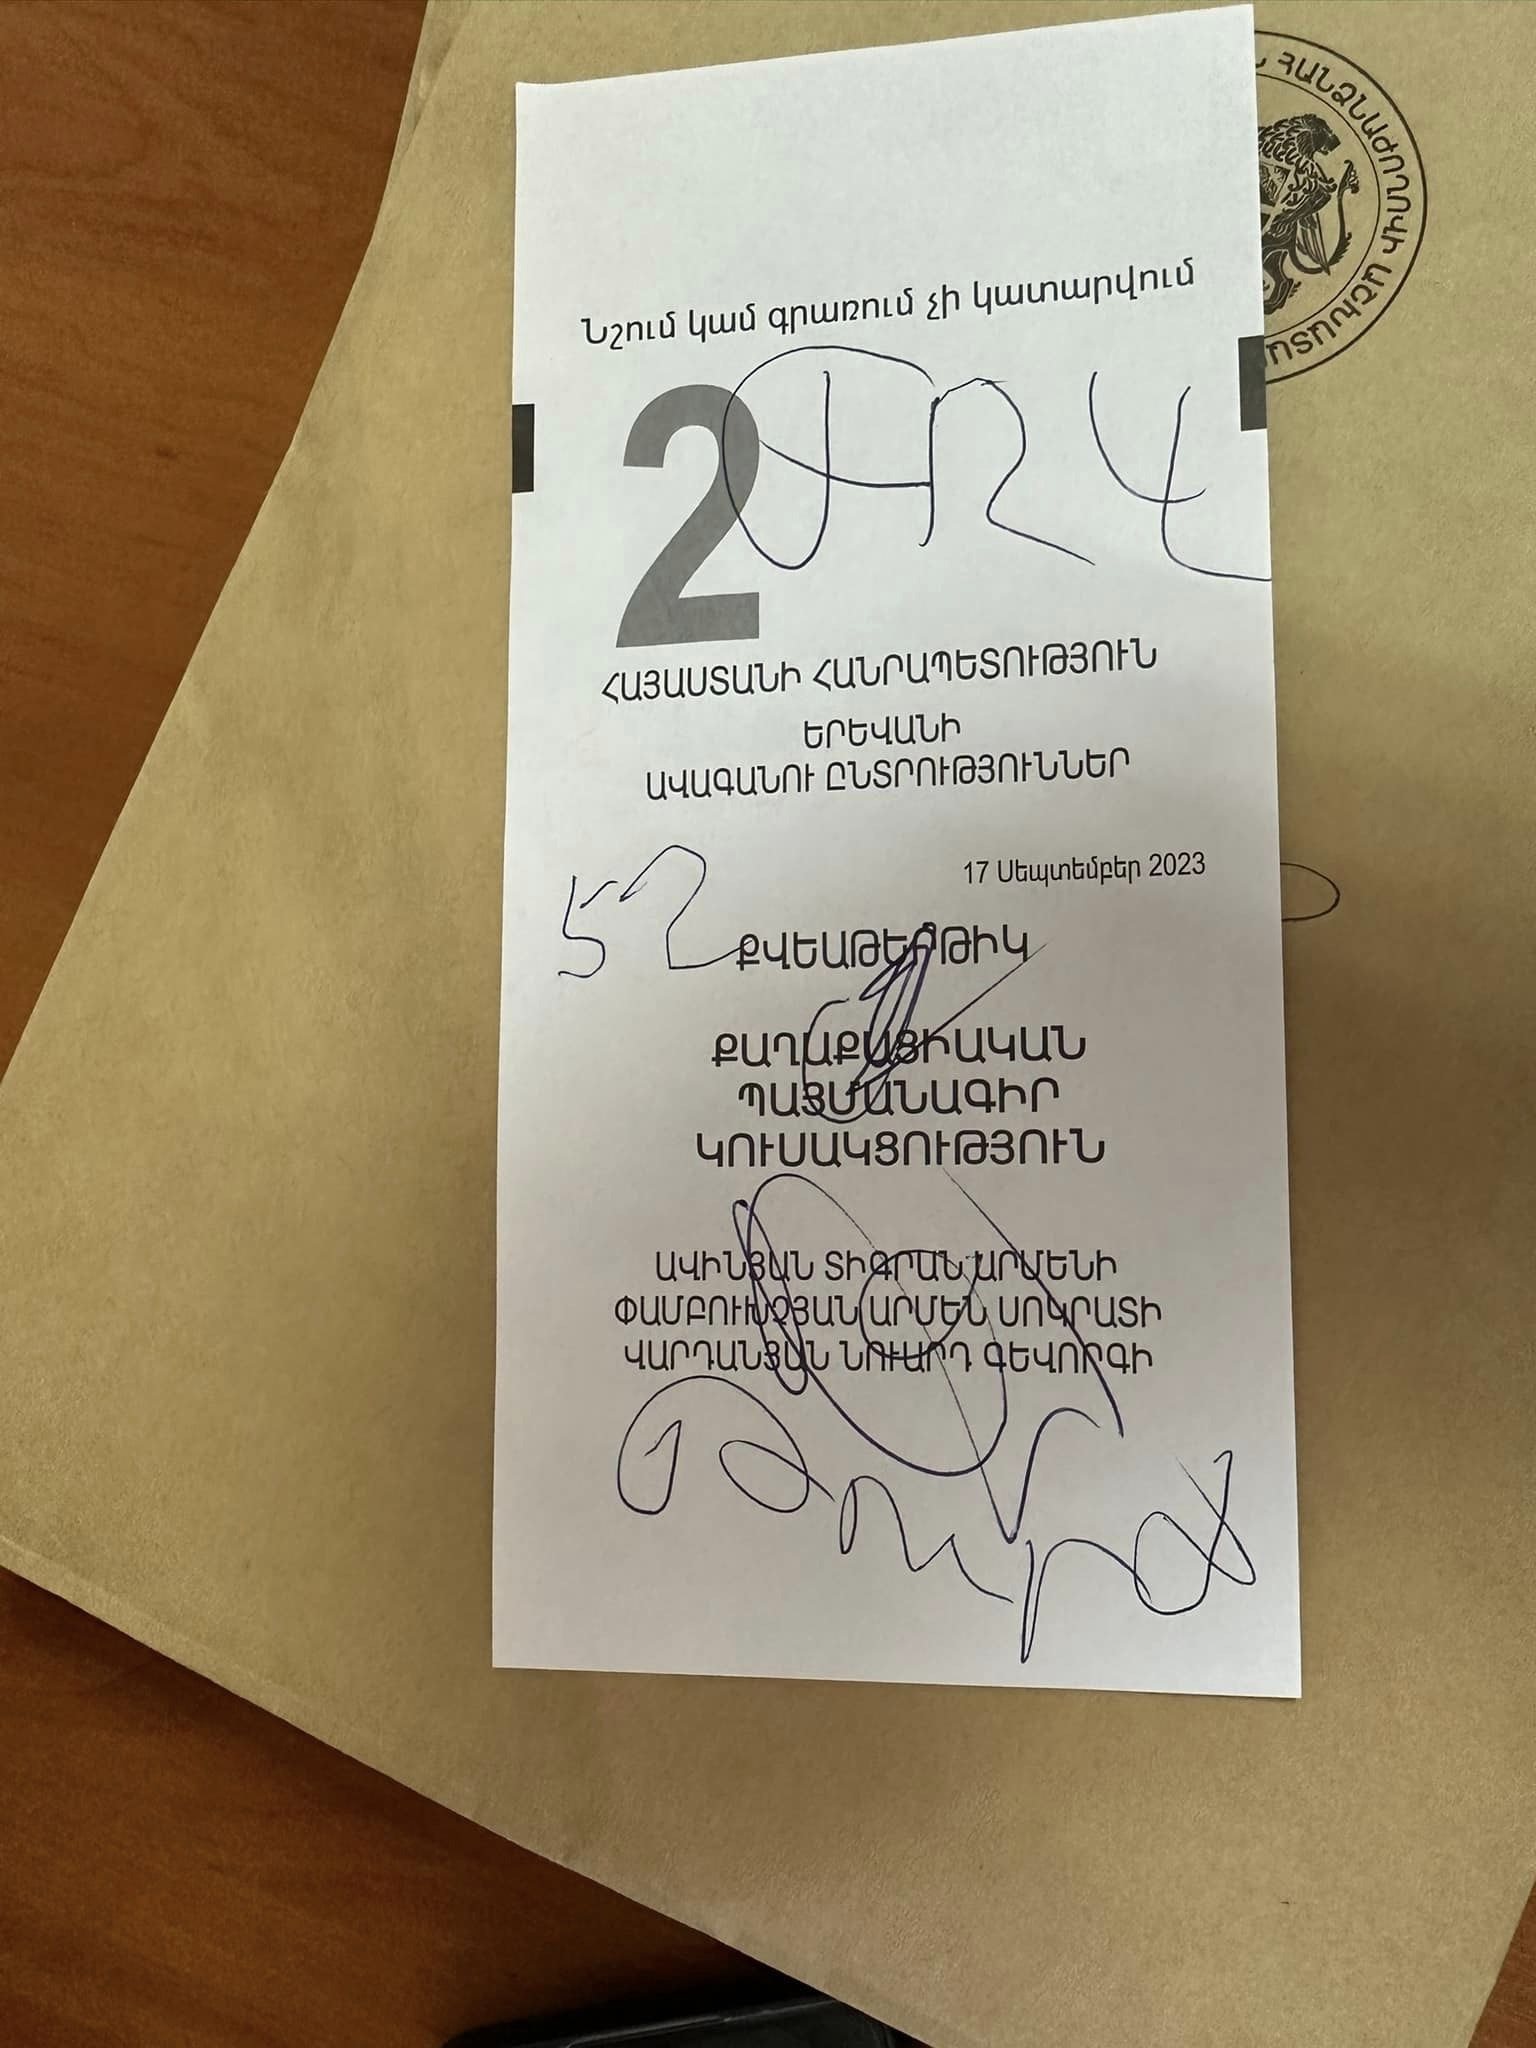 ՀԱՆՁՆԱԺՈՂՈՎԻ ԱՇԽԱՏԱ
Նշում կամ գրառում չի կատարվում
2
ՀԱՅԱՍՏԱՆԻ ՀԱՆՐԱՊԵՏՈՒԹՅՈՒՆ
ԵՐԵՎԱՆԻ
ԱՎԱԳԱՆՈՒ ԸՆՏՐՈՒԹՅՈՒՆՆԵՐ
17 Սեպտեմբեր 2023
ՔՎԵԱԹԵՐԹԻԿ
ՔԱՂԱՔԱՑԻԱԿԱՆ
ՊԱՅՄԱՆԱԳԻՐ
ԿՈՒՍԱԿՑՈՒԹՅՈՒՆ
ԱՎԻՆՅԱՆ ՏԻԳՐԱՆ ԱՐՄԵՆԻ
ՓԱՄԲՈՒԽՉՅԱՆ ԱՐՄԵՆ ՍՈԿՐԱՏԻ
ՎԱՐԴԱՆՅԱՆ ՆՈՒԱՐԴ ԳԵՎՈՐԳԻ